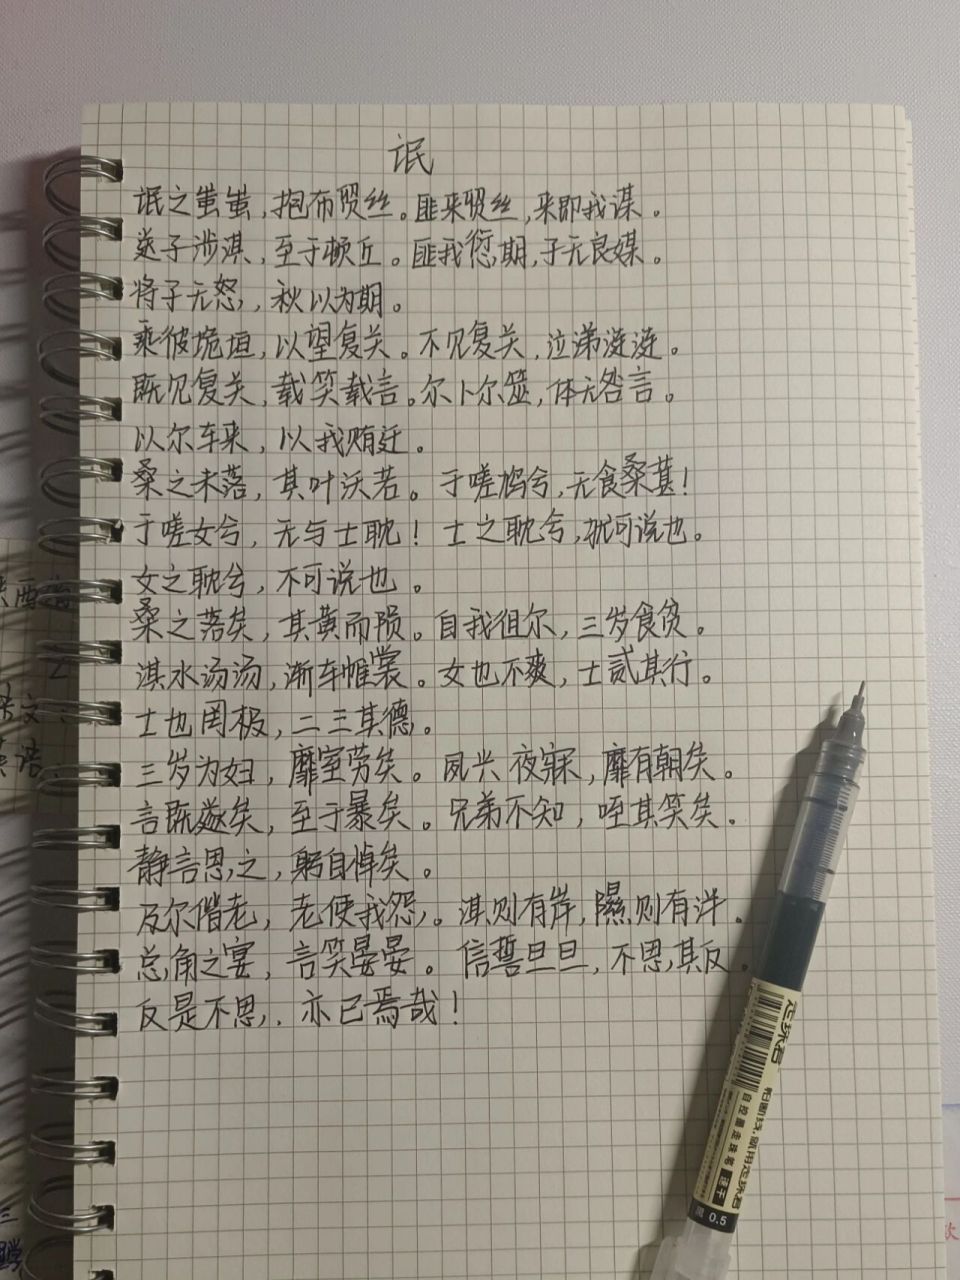 氓
氓之蚩蚩,抱布贸丝。匪来贸丝,来即我谋。
送子涉淇,至于顿丘。匪我愆期,子无良媒。
将子无怒,秋以为期。
乘彼垝垣,以望复关。不见复关,泣涕涟涟。
既见复关,载笑载言。尔卜尔筮,体无咎言。
以尔车来,以我贿迁。
桑之未落,其叶沃若。于嗟鸠兮,无食桑葚!
于嗟女兮,无与士耽!士之耽兮,犹可说也。
女之耽兮,不可说也。
桑之落矣,其黄而陨。自我徂尔,三岁食贫。
淇水汤汤,渐车帷裳。女也不爽,士贰其行。
士也罔极,二三其德。
三岁为妇,靡室劳矣。夙兴夜寐,靡有朝矣。
言既遂矣,至于暴矣。兄弟不知,咥其笑矣。
静言思之,躬自悼矣。
及尔偕老,老使我怨。淇则有岸,隰则有泮。
总角之宴,言笑晏晏。信誓旦旦,不思其反。
反是不思,亦已焉哉!
自控墨走珠笔
速干
黑 0.5